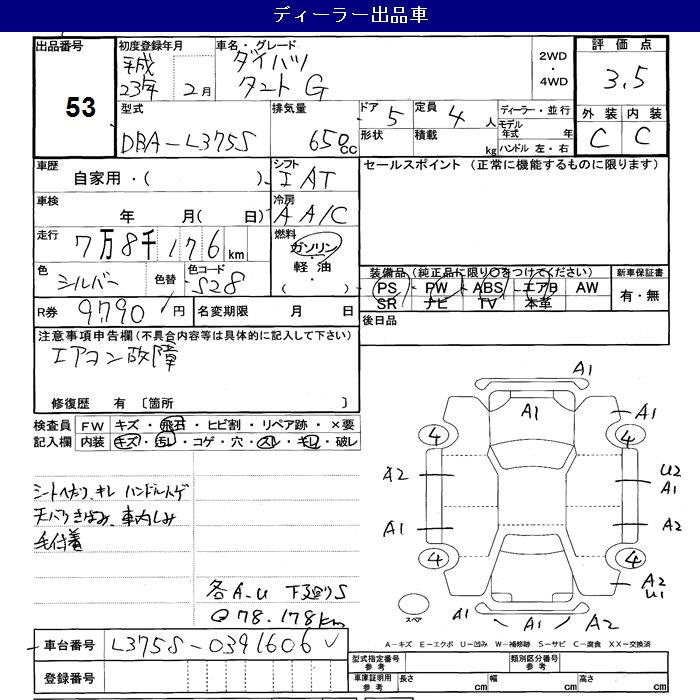 ディーラー出品車
出品番号 53
初度登録年月 平成 23年 2月
車名・グレード ダイハツ タント G
2WD・4WD
評価点 3.5
型式 DBA-L375S
排気量 650cc
ドア 5 形状
定員 4人 積載 kg
ディーラー・並行
モデル年式 年
ハンドル 左・右
外装 C 内装 C
車歴 自家用・( )
シフト IAT
セールスポイント (正常に機能するものに限ります)
車検 年 月( 日)
冷房 AA/C
走行 7万8千176km
燃料 ガソリン・軽油・( )
色 シルバー 色替 色コード S28
装備品(純正品に限り○をつけてください)
PS・PW・ABS・エアB・AW
SR・ナビ・TV・本革
新車保証書 有・無
R券 9790円
名変期限 月 日
後日品
注意事項申告欄(不具合内容等は具体的に記入して下さい)
エアコン故障
修復歴 有 〔箇所 〕
検査員記入欄
FW キズ・飛石・ヒビ割・リペア跡・×要
内装 キズ・汚レ・コゲ・穴・スレ・キレ・破レ
シートヘたり、キレ ハンドルハゲ
天バリきばみ、車内しみ
毛付着
各A.U 下廻りS
Q78.178km
A1
A1 A1
4 4
A2 U2 A1
A1 A2
4 4
A2 U1
スペア
A1 A1 A2
A-キズ E-エクボ U-凹み W-補修跡 S-サビ C-腐食 XX-交換済
車台番号 L375S-0391606
登録番号
型式指定番号 参考
類別区分番号 参考
車庫証明用 参考 長さ cm 幅 cm 高さ cm